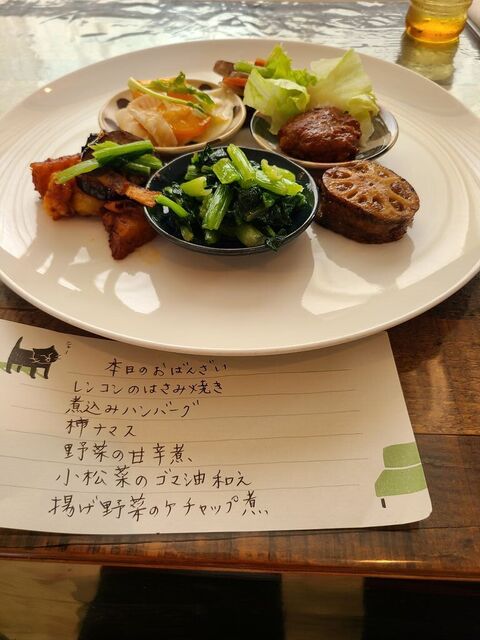 本日のおばんざい
レンコンのはさみ焼き
煮込みハンバーグ
柿ナマス
野菜の甘辛煮、
小松菜のゴマ油和え
揚げ野菜のケチャップ煮、